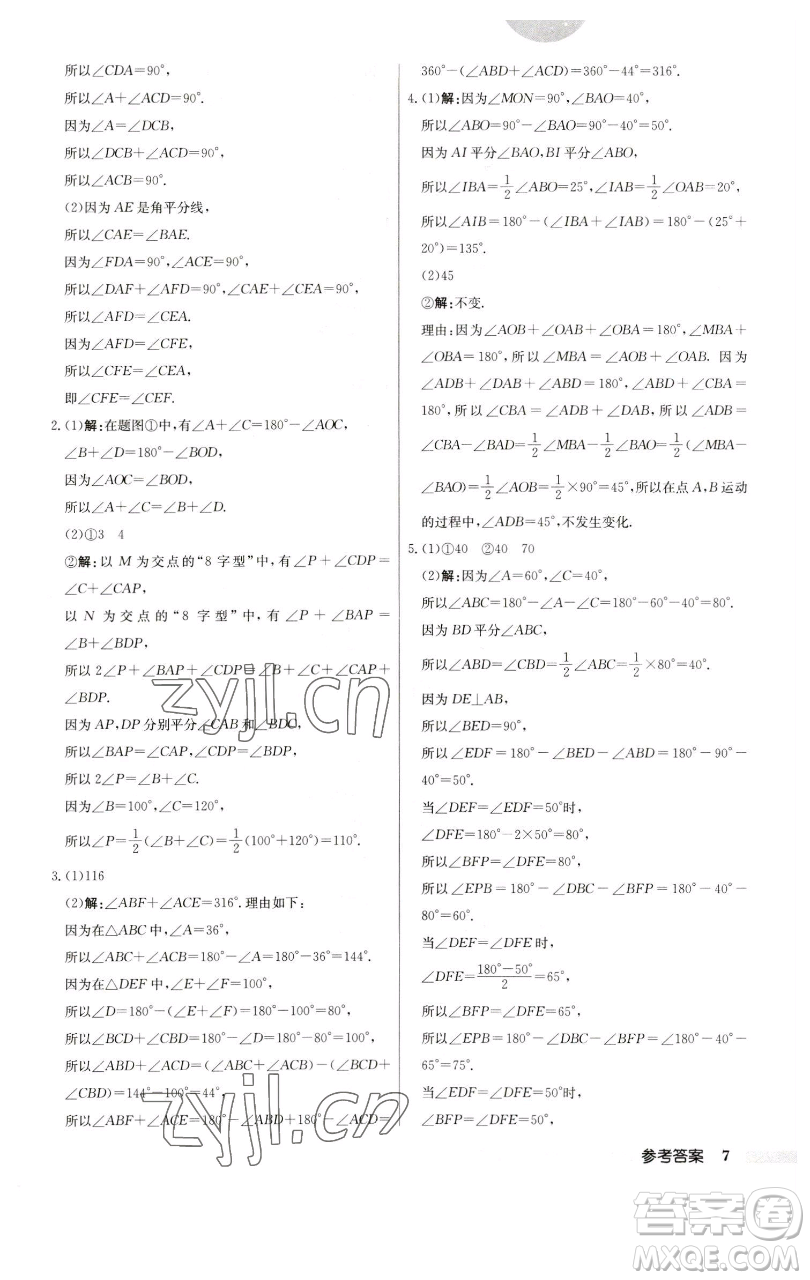 所以∠CDA=90°,
所以∠A+∠ACD=90°.
因为∠A=∠DCB,
所以∠DCB+∠ACD=90°,
所以∠ACB=90°.
(2)因为AE是角平分线,
所以∠CAE=∠BAE.
因为∠FDA=90°,∠ACE=90°,
所以∠DAF+∠AFD=90°,∠CAE+∠CEA=90°,
所以∠AFD=∠CEA.
因为∠AFD=∠CFE,
所以∠CFE=∠CEA,
即∠CFE=∠CEF.
2.(1)解:在题图①中,有∠A+∠C=180°-∠AOC,
∠B+∠D=180°-∠BOD,
因为∠AOC=∠BOD,
所以∠A+∠C=∠B+∠D.
(2)①3 4
②解:以M为交点的“8字型”中,有∠P+∠CDP=
∠C+∠CAP,
以N为交点的“8字型”中,有∠P+∠BAP=
∠B+∠BDP,
所以2∠P+∠BAP+∠CDP=∠B+∠C+∠CAP+
∠BDP.
因为AP,DP分别平分∠CAB和∠BDC,
所以∠BAP=∠CAP,∠CDP=∠BDP,
所以2∠P=∠B+∠C.
因为∠B=100°,∠C=120°,
所以∠P=1/2(∠B+∠C)=1/2(100°+120°)=110°.
3.(1)116
(2)解:∠ABF+∠ACE=316°.理由如下:
因为在△ABC中,∠A=36°,
所以∠ABC+∠ACB=180°-∠A=180°-36°=144°.
因为在△DEF中,∠E+∠F=100°,
所以∠D=180°-(∠E+∠F)=180°-100°=80°,
所以∠BCD+∠CBD=180°-∠D=180°-80°=100°,
所以∠ABD+∠ACD=(∠ABC+∠ACB)-(∠BCD+
∠CBD)=144°-100°=44°,
所以∠ABF+∠ACE=180°-∠ABD+180°-∠ACD=
360°-(∠ABD+∠ACD)=360°-44°=316°.
4.(1)解:因为∠MON=90°,∠BAO=40°,
所以∠ABO=90°-∠BAO=90°-40°=50°.
因为AI平分∠BAO,BI平分∠ABO,
所以∠IBA=1/2∠ABO=25°,∠IAB=1/2∠OAB=20°,
所以∠AIB=180°-(∠IBA+∠IAB)=180°-(25°+
20°)=135°.
(2)45
②解:不变.
理由:因为∠AOB+∠OAB+∠OBA=180°,∠MBA+
∠OBA=180°,所以∠MBA=∠AOB+∠OAB. 因为
∠ADB+∠DAB+∠ABD=180°,∠ABD+∠CBA=
180°,所以∠CBA=∠ADB+∠DAB,所以∠ADB=
∠CBA-∠BAD=1/2∠MBA-1/2∠BAO=1/2(∠MBA-
∠BAO)=1/2∠AOB=1/2×90°=45°,所以在点A,B运动
的过程中,∠ADB=45°,不发生变化.
5.(1)①40 ②40 70
(2)解:因为∠A=60°,∠C=40°,
所以∠ABC=180°-∠A-∠C=180°-60°-40°=80°.
因为BD平分∠ABC,
所以∠ABD=∠CBD=1/2∠ABC=1/2×80°=40°.
因为DE⊥AB,
所以∠BED=90°,
所以∠EDF=180°-∠BED-∠ABD=180°-90°-
40°=50°.
当∠DEF=∠EDF=50°时,
∠DFE=180°-2×50°=80°,
所以∠BFP=∠DFE=80°,
所以∠EPB=180°-∠DBC-∠BFP=180°-40°-
80°=60°.
当∠DEF=∠DFE时,
∠DFE=(180°-50°)/2=65°,
所以∠BFP=∠DFE=65°,
所以∠EPB=180°-∠DBC-∠BFP=180°-40°-
65°=75°.
当∠EDF=∠DFE=50°时,
∠BFP=∠DFE=50°,
参考答案 7
zyjl.cn
zyjl.cn
答案圈
MXQE.COM